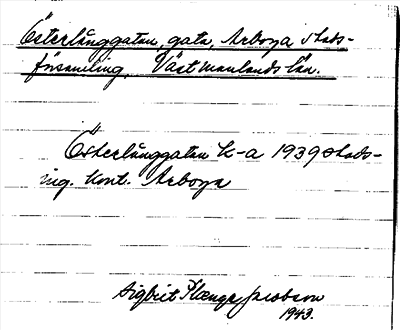 Österlånggatan, gata, Arboya stads-
församling, Västmanlands län.
Österlånggatan K-a 1939 stads-
ing. kont. Arboya
Sigbrit Plænge Jacobson
1943.